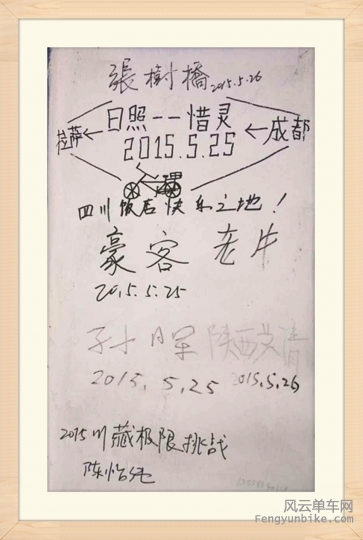 張樹橋 2015.5.26
日照--惜灵
拉萨 ← ← 成都
2015.5.25
四川饭店快乐之地!
豪客 老牛
2015.5.25
2015.5.25 2015.5.26
2015川藏极限挑战
风云单车网
Fengyunbike.com